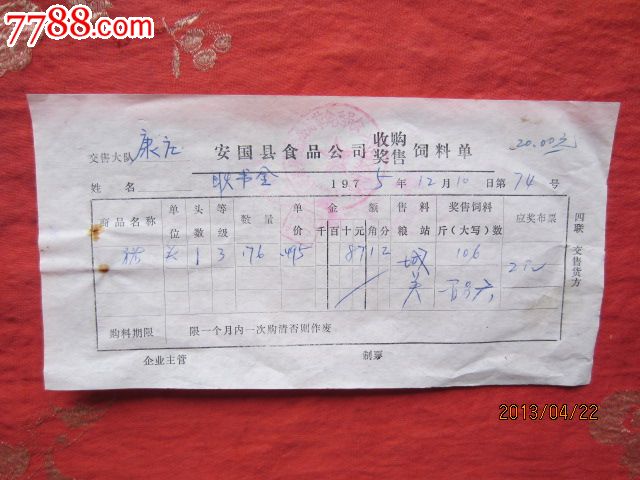 7788.com
中国收藏热线
安国县食品公司 收购奖售 饲料单
20.00元
交售大队 康庄
姓名 耿书全 1975年12月10日第74号
商品名称 单位 头数 等级 数量 单价 金额 千百十元角分 售粮 料站 奖售饲料 斤(大写)数 应奖布票
猪 头 1 3 176 .495 87 12 城关 106
一百〇六
限一个月内一次购清否则作废
购料期限
四联 交售货方
企业主管 制票
2013/04/22